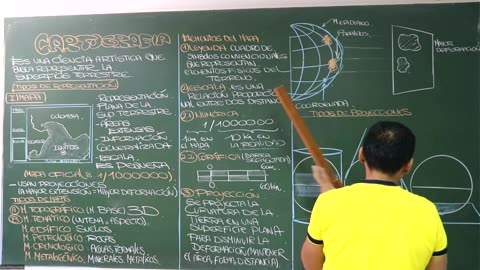 CARTOGRAFIA
ES UNA CIENCIA ARTÍSTICA QUE
BUSCA REPRESENTAR LA
SUPERFICIE TERRESTRE.
TIPOS DE REPRESENTACIÓN
I MAPA
COLOMBIA
IQUITOS
- REPRESENTACIÓN
PLANA DE LA
SUP. TERRESTRE.
- ÁREAS
EXTENSAS
- INFORMACIÓN
GENERALIZADA
- ESCALA
ES PEQUEÑA
MAPA OFICIAL: 1/1000000)
- USAN PROYECCIONES
(A MAYOR EXTENSIÓN = MAYOR DEFORMACIÓN)
TIPOS DE MAPAS
M TOPOGRÁFICO (M BASE) 3D
M. TEMÁTICO (UN TEMA = ASPECTO).
M EDÁFICO SUELOS
M PETROLÓGICO ROCAS
M CRENOLÓGICO AGUAS TERMALES
M METALOGÉNICO: MINERALES METÁLICOS.
ELEMENTOS DEL MAPA
LEYENDA CUADRO DE
SÍMBOLOS CONVENCIONALES
QUE REPRESENTAN
ELEMENTOS FÍSICOS DEL
TERRENO.
ESCALA ES UNA
RELACIÓN PROPORCIO
NAL ENTRE DOS DISTANCI
2.1 NUMÉRICA
1/1000000
1cm EN EL MAPA
10 km EN LA REALIDAD
2.2 GRÁFICA (BARRA SEGMENTADA)
60km.
3 PROYECCIÓN
LA
CURVATURA DE LA
TIERRA EN UNA
SUPERFICIE PLANA
PARA DISMINUIR LA
DEFORMACIÓN (MANTENER
EL ÁREA, FORMA, DISTANCIA)
MERIDIANO
PARALELOS
MAYOR
DEFORMACIÓN
COORDENADA
TIPOS DE PROYECCIONES